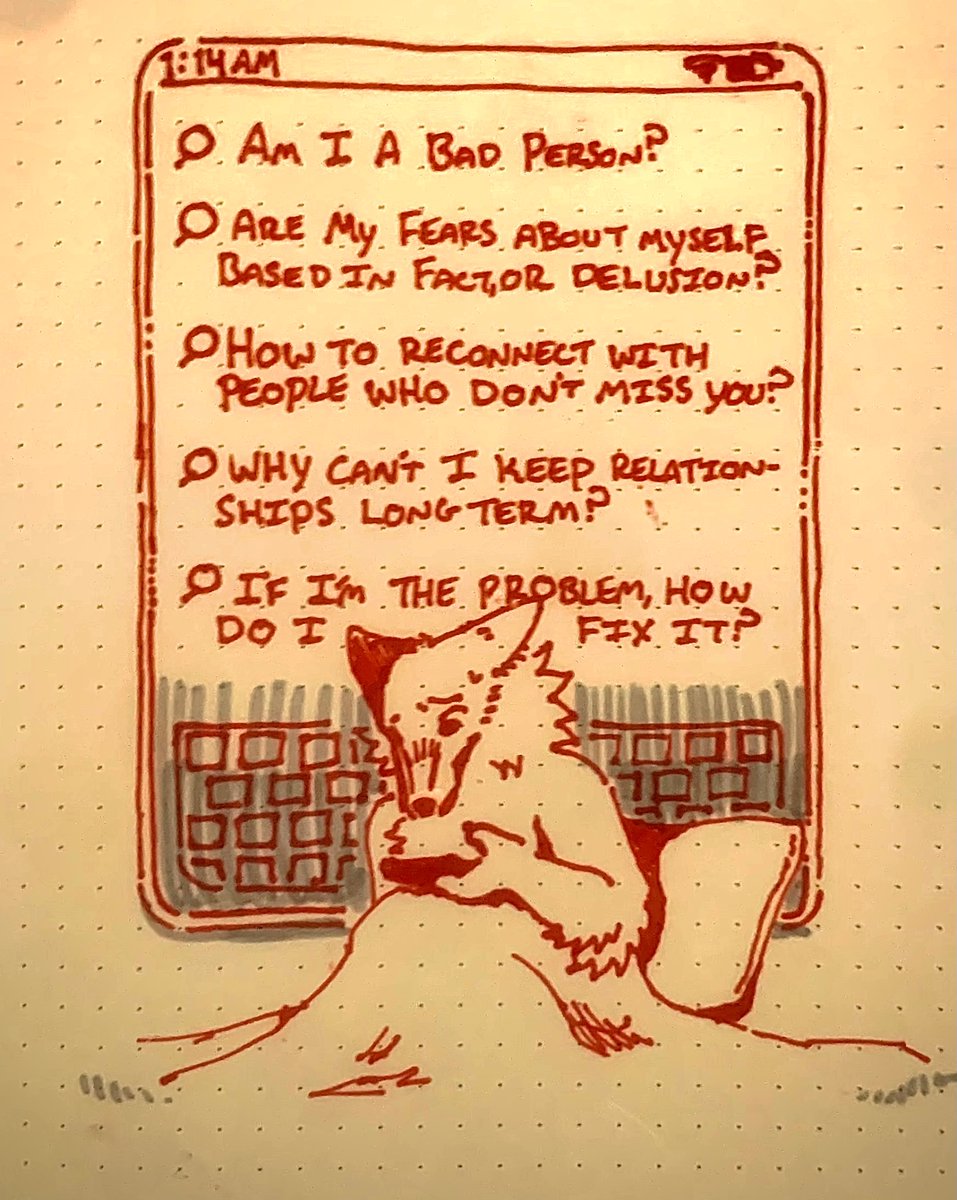 1:14 AM
Am I A Bad Person?
Are My Fears about myself
Based in Fact, or Delusion?
How to reconnect with
people who don't miss you?
Why can't I keep relation-
ships long term?
If I'm the problem, how
do I fix it?